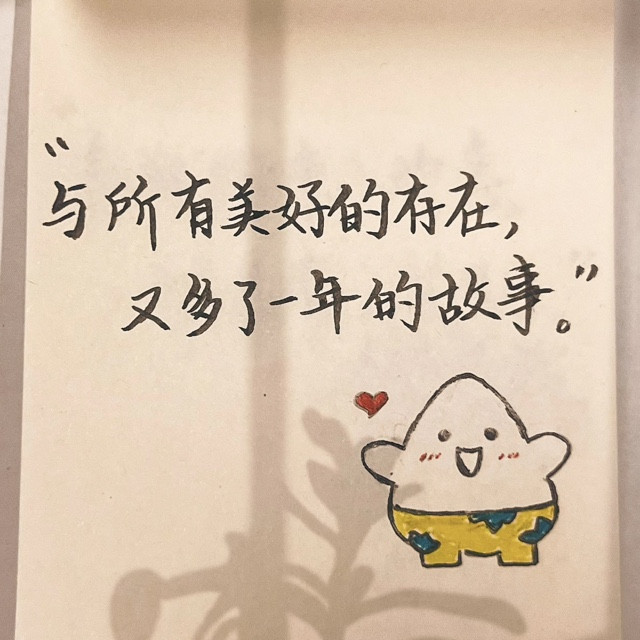 “与所有美好的存在，
又多了一年的故事。”